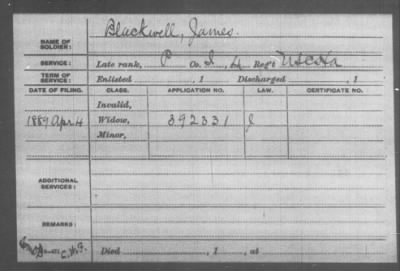 NAME OF SOLDIER: Blackwell, James.
SERVICE: Late rank, P Co. I, Reg't U S C
TERM OF SERVICE: Enlisted , 1 Discharged , 1
DATE OF FILING. CLASS. APPLICATION NO. LAW. CERTIFICATE NO.
Invalid,
1889 Apr 4 Widow, 392331 J
Minor,
ADDITIONAL SERVICES:
REMARKS:
Died , 1 , at